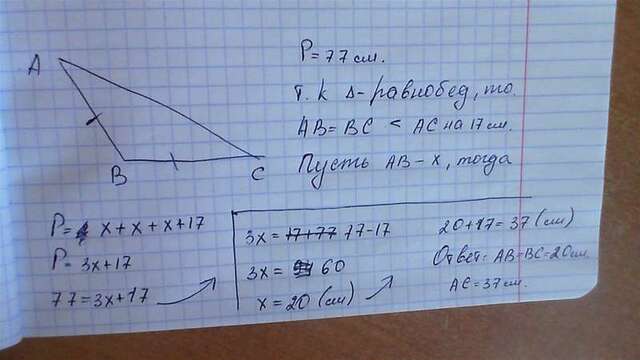 A
B
C
P=77 см.
Т.к Δ-равнобед, то.
AB=BC < AC на 17 см.
Пусть AB-x, тогда
P= x+x+x+17
P= 3x+17
77=3x+17
3x = 17+77 77-17
3x = 60
x=20 (см)
20+17=37 (см)
Ответ: AB=BC=20см.
AC=37см.